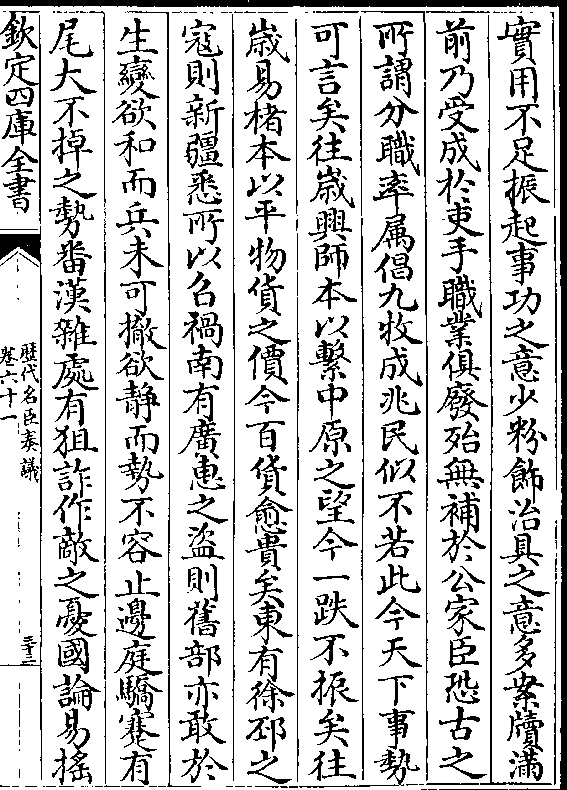 實用不足振起事功之意少粉飾治具之意多案牘滿
前乃受成於吏手職業俱廢殆無補於公家臣恐古之
所謂分職率属倡九牧成兆民似不若此今天下事勢
可言矣往嵗興師本以繫中原之望今一跌不振矣往
嵗易楮本以平物貨之價今百貨愈貴矣東有徐邳之
寇則新疆悉所以召禍南有廣惠之盜則舊部亦敢於
生變欲和而兵未可撤欲静而勢不容止邊庭驕蹇有
尾大不掉之勢畨漢雜處有狙詐作敵之憂國論易搖
欽定四庫全書
歴代名臣奏議
卷六十一
三十二